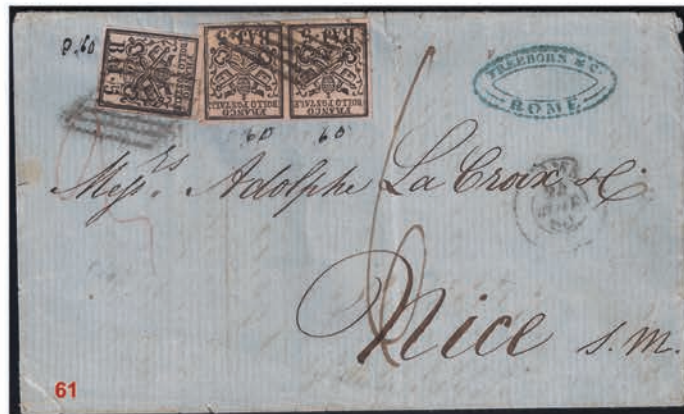 P. 60
BAJ. 5
BOLLO POSTALE
BAJ. 5
FRANCO
BOLLO POSTALE
BAJ. 5
FRANCO
BOLLO POSTALE
60
60
FREEBORN & C.
ROME
Mess.rs Adolphe La Croix & C.
Nice s.m.
61